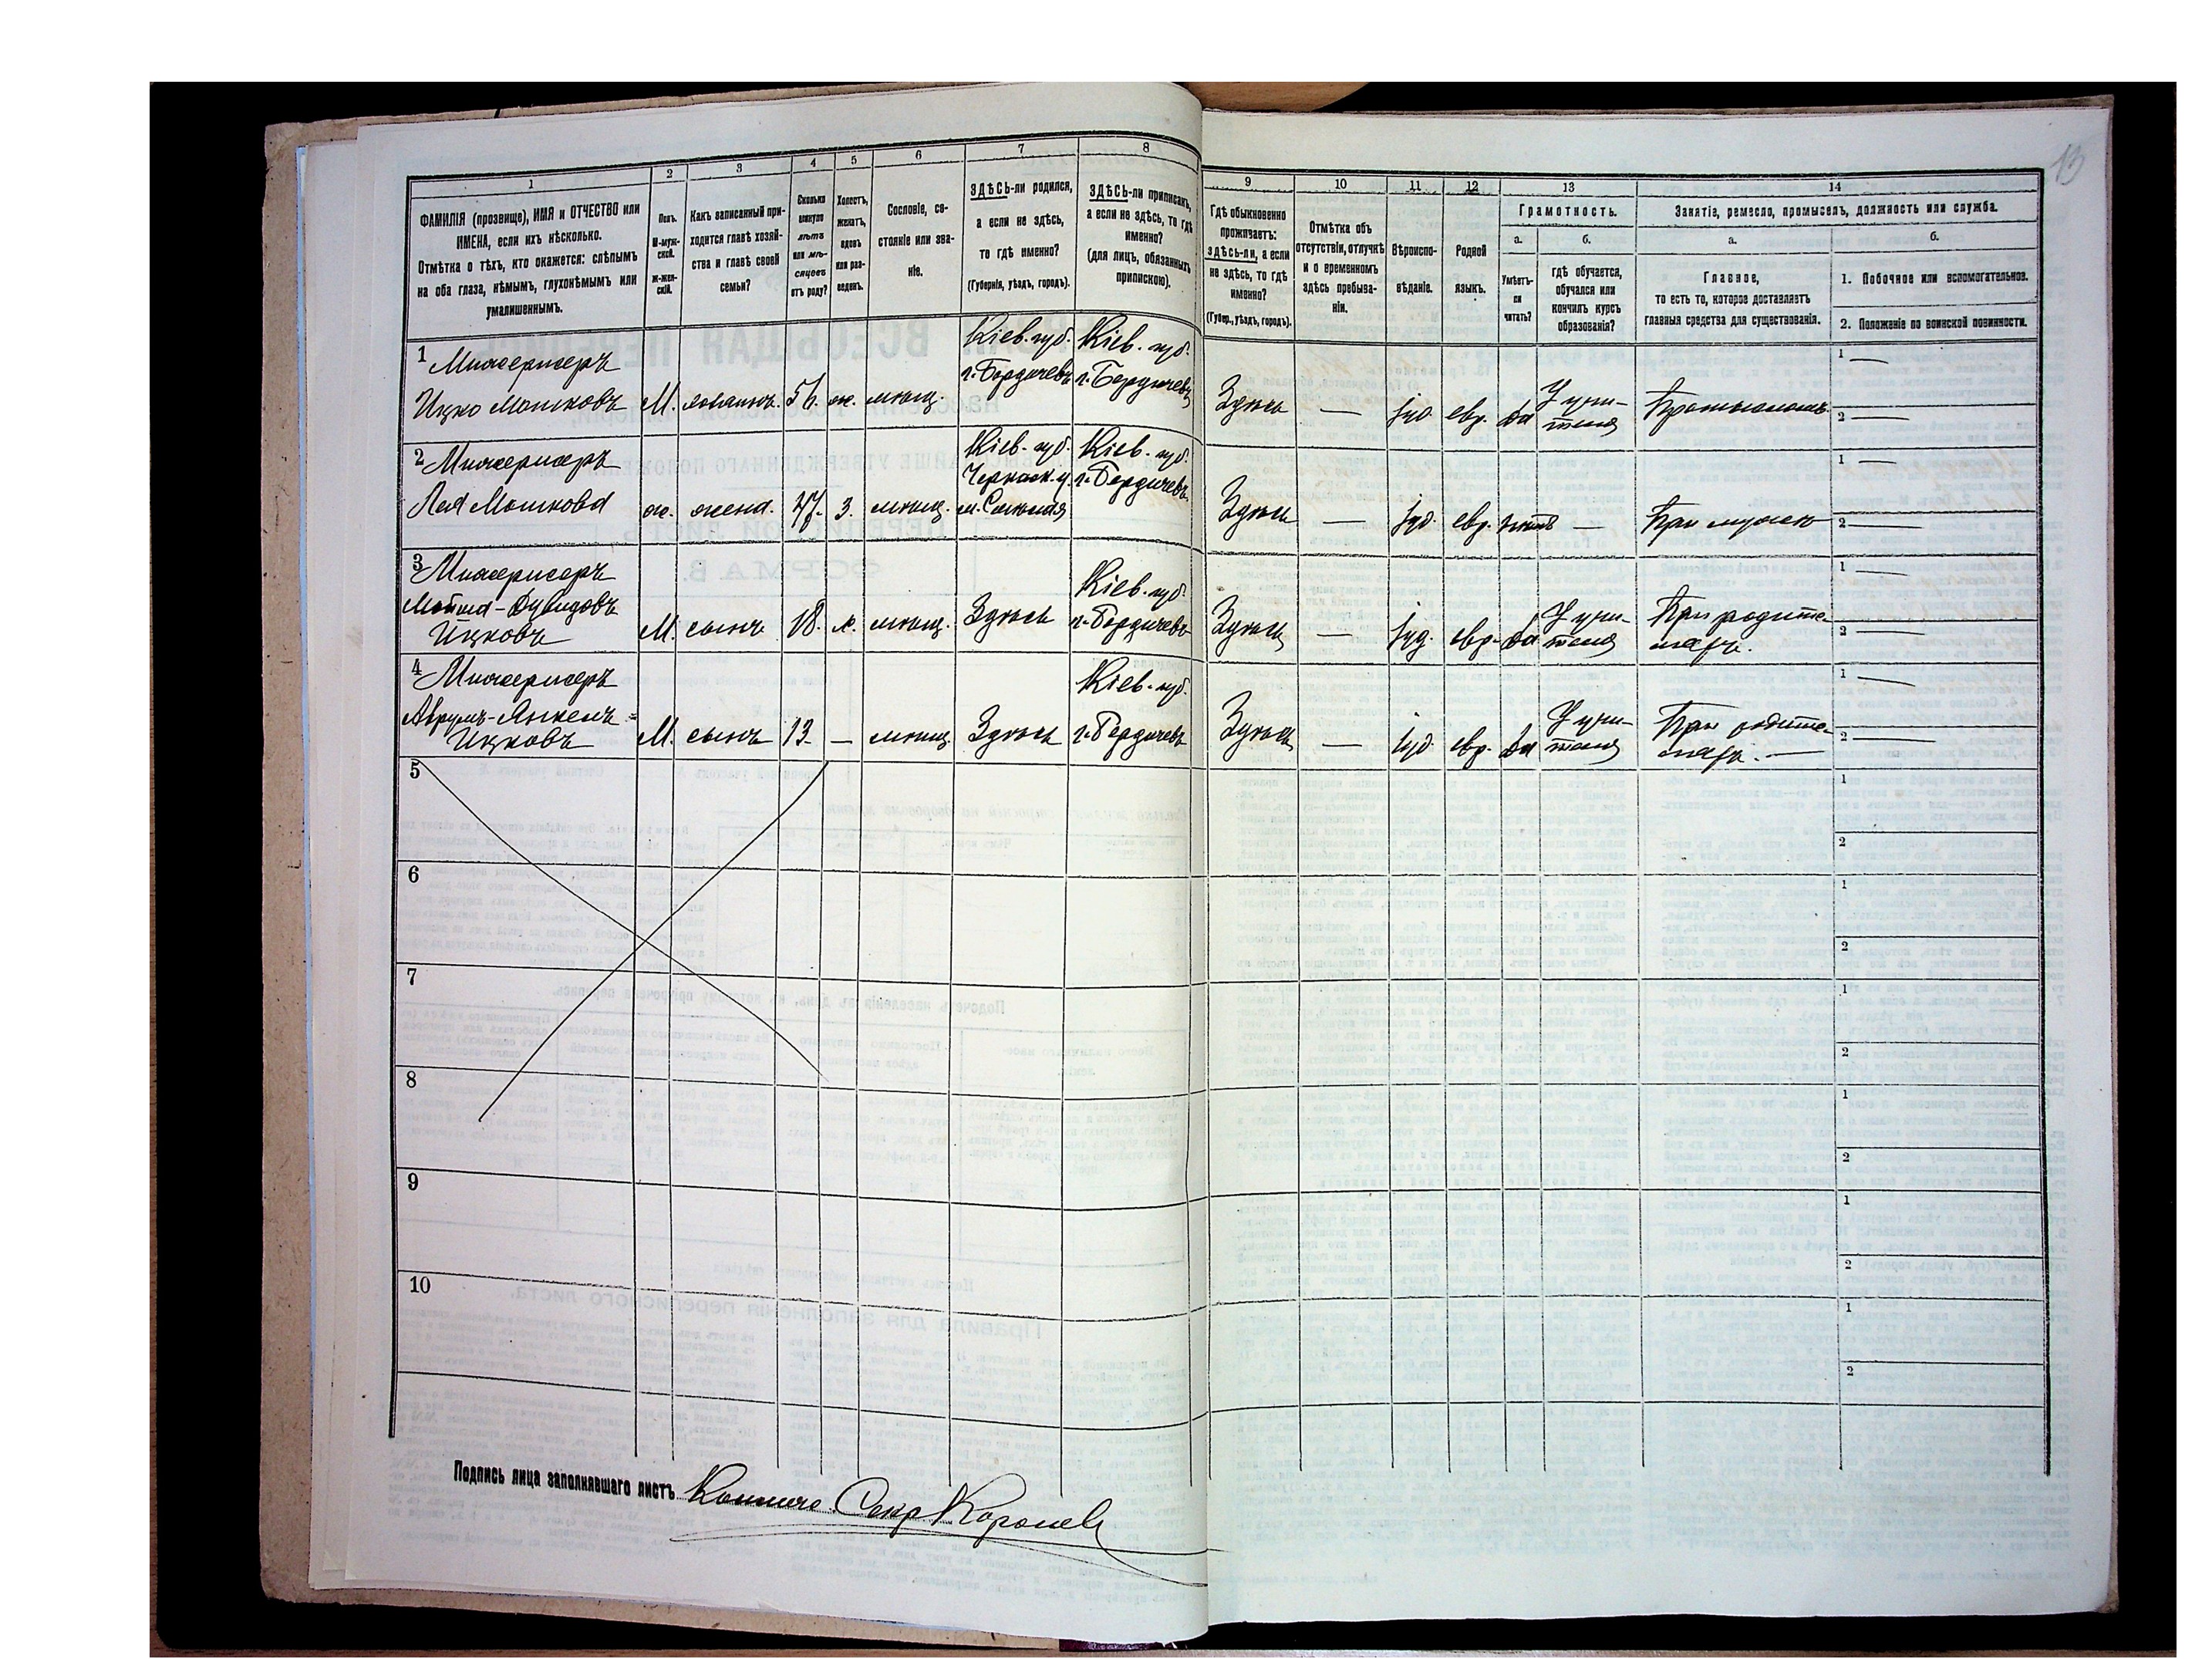 13
1
2
3
4
5
6
7
8
9
10
11
12
13
14
ФАМИЛІЯ (прозвище), ИМЯ и ОТЧЕСТВО или
ИМЕНА, если ихъ нѣсколько.
Отмѣтка о тѣхъ, кто окажется: слѣпымъ
на оба глаза, нѣмымъ, глухонѣмымъ или
умалишеннымъ.
Полъ.
М-муж-
ской.
ж-жен-
скій.
Какъ записанный при-
ходится главѣ хозяй-
ства и главѣ своей
семьи?
Сколько
минуло
лѣтъ
или мѣ-
сяцевъ
отъ роду?
Холостъ,
женатъ,
вдовъ
или раз-
веденъ.
Сословіе, со-
стояніе или зва-
ніе.
ЗДѢСЬ-ли родился,
а если не здѣсь,
то гдѣ именно?
(Губернія, уѣздъ, городъ).
ЗДѢСЬ-ли приписанъ,
а если не здѣсь, то гдѣ
именно?
(для лицъ, обязанныхъ
припискою).
Гдѣ обыкновенно
проживаетъ:
здѣсь-ли, а если
не здѣсь, то гдѣ
именно?
(Губер., уѣздъ, городъ).
Отмѣтка объ
отсутствіи, отлучкѣ
и о временномъ
здѣсь пребыва-
ніи.
Вѣроиспо-
вѣданіе.
Родной
языкъ.
Грамотность.
а.
Умѣетъ-
ли
читать?
б.
гдѣ обучается,
обучался или
кончилъ курсъ
образованія?
Занятіе, ремесло, промыселъ, должность или служба.
а.
Главное,
то есть то, которое доставляетъ
главныя средства для существованія.
б.
1. Побочное или вспомогательное.
2. Положеніе по воинской повинности.
1
Ицко Мошковъ
М. хозяинъ. 56. ж. мѣщ.
Кіев. губ.
г. Бердичевъ
Кіев. губ.
г. Бердичевъ
Здѣсь — іуд. евр. да
У учи-
теля
1 —
2 —
2
Лея Мошкова
ж. жена. 47. З. мѣщ.
Кіев. губ.
Черкаск. у.
Кіев. губ.
г. Бердичевъ
Здѣсь — іуд. евр. нѣтъ —
При мужѣ
1 —
2 —
3
Ицковъ
М. сынъ 18. х. мѣщ. Здѣсь
Кіев. губ.
г. Бердичевъ
Здѣсь — іуд. евр. да
У учи-
теля
При родите-
ляхъ.
1 —
2 —
4
Аврумъ-Янкель
Ицковъ
М. сынъ 13. — мѣщ. Здѣсь
Кіев. губ.
г. Бердичевъ
Здѣсь — іуд. евр. да
У учи-
теля
При родите-
ляхъ. —
1 —
2 —
5
1
2
6
1
2
7
1
2
8
1
2
9
1
2
10
1
2
Подпись лица заполнявшаго листъ